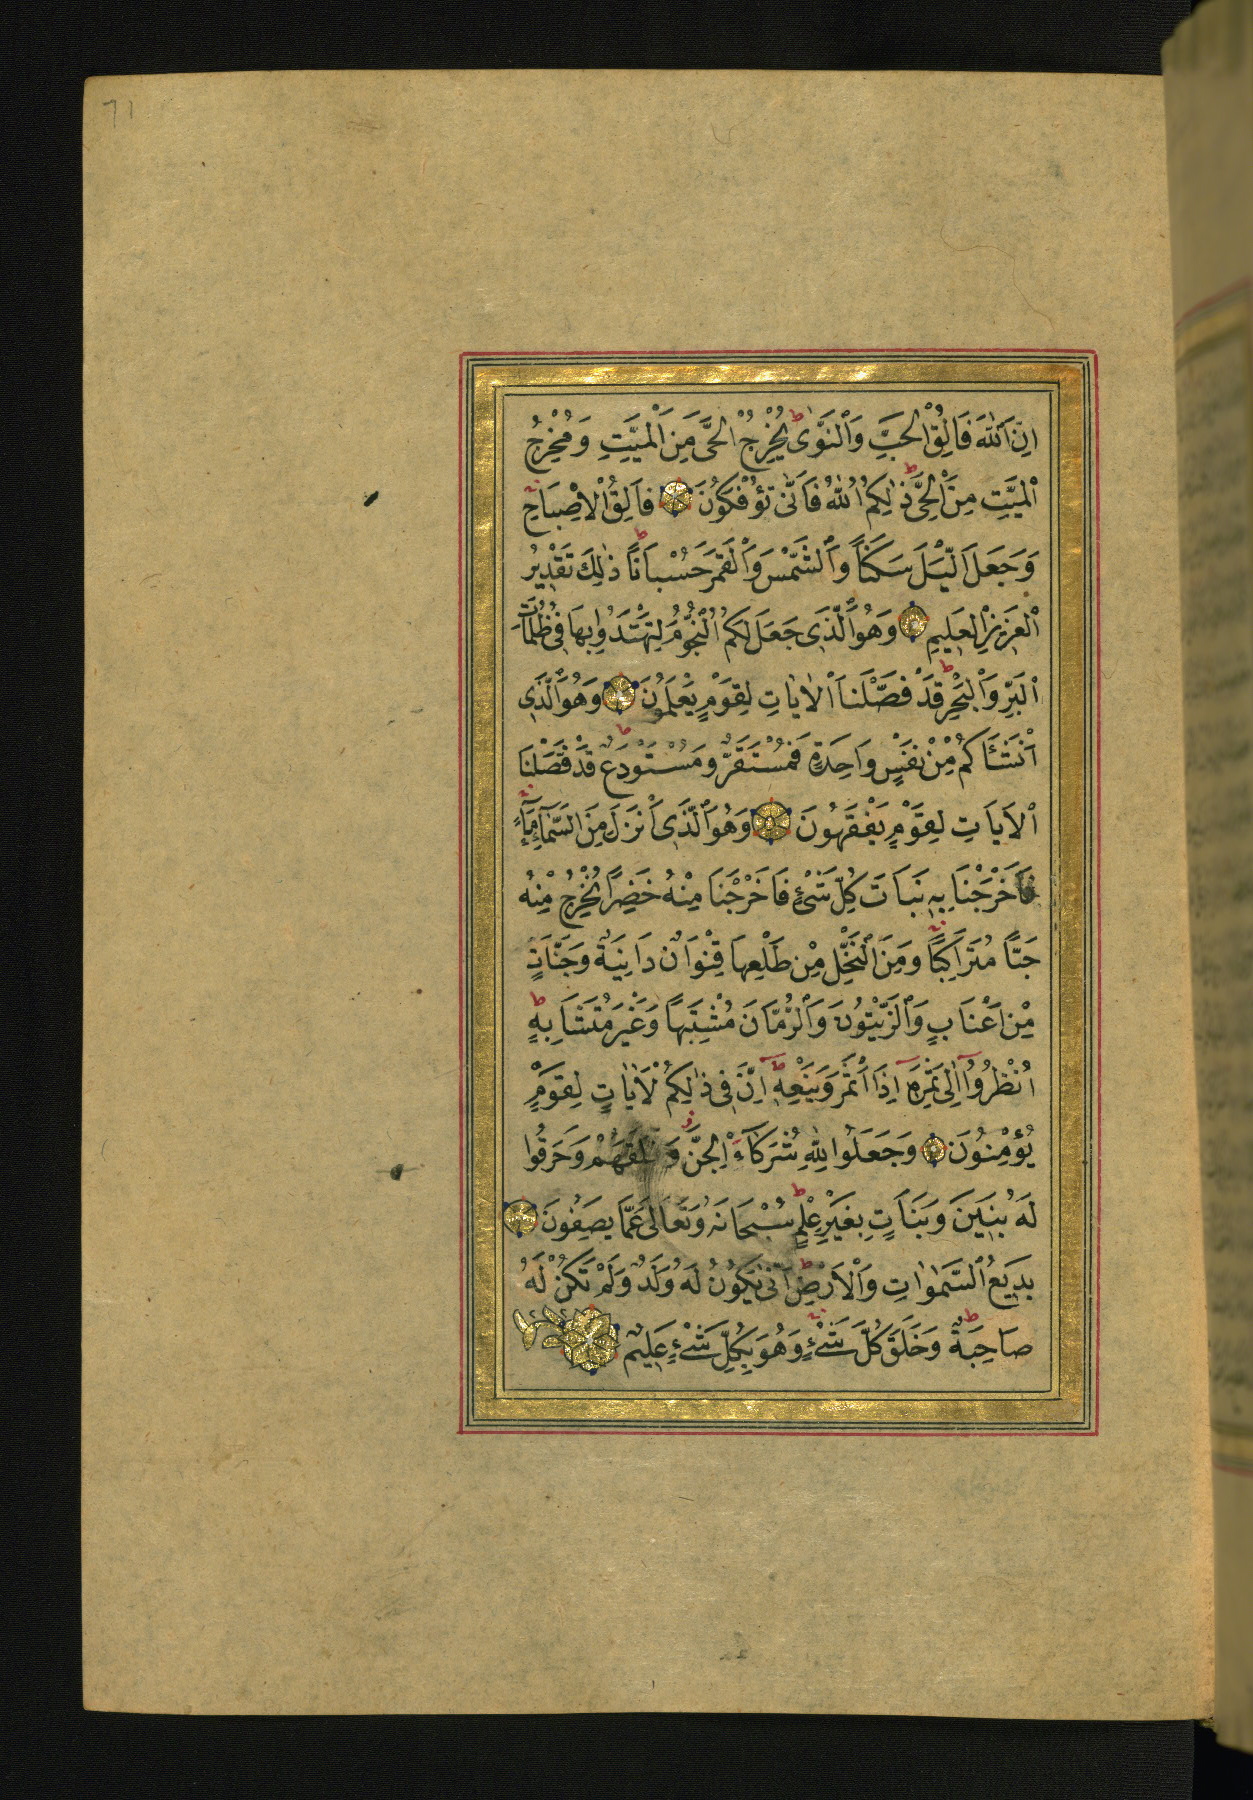 ٦١
اِنَّ اللّٰهَ فَالِقُ الْحَبِّ وَالنَّوٰىۜ يُخْرِجُ الْحَيَّ مِنَ الْمَيِّتِ وَمُخْرِجُ
الْمَيِّتِ مِنَ الْحَيِّۜ ذٰلِكُمُ اللّٰهُ فَاَنّٰى تُؤْفَكُونَ فَالِقُ الْاِصْبَاحِ
وَجَعَلَ الَّيْلَ سَكَنًا وَالشَّمْسَ وَالْقَمَرَ حُسْبَانًا ذٰلِكَ تَقْدِيرُ
الْعَزِيزِ الْعَلِيمِ وَهُوَ الَّذِى جَعَلَ لَكُمُ النُّجُومَ لِتَهْتَدُوا بِهَا فِى ظُلُمَاتِ
الْبَرِّ وَالْبَحْرِ قَدْ فَصَّلْنَا الْاٰيَاتِ لِقَوْمٍ يَعْلَمُونَ وَهُوَ الَّذِى
اَنْشَاَكُمْ مِنْ نَفْسٍ وَاحِدَةٍ فَمُسْتَقَرٌّ وَمُسْتَوْدَعٌ قَدْ فَصَّلْنَا
الْاٰيَاتِ لِقَوْمٍ يَفْقَهُونَ وَهُوَ الَّذِى اَنْزَلَ مِنَ السَّمَاۤءِ مَاۤءً
فَاَخْرَجْنَا بِهِ نَبَاتَ كُلِّ شَىْءٍ فَاَخْرَجْنَا مِنْهُ خَضِرًا نُخْرِجُ مِنْهُ
حَبًّا مُتَرَاكِبًا وَمِنَ النَّخْلِ مِنْ طَلْعِهَا قِنْوَانٌ دَانِيَةٌ وَجَنَّاتٍ
مِنْ اَعْنَابٍ وَالزَّيْتُونَ وَالرُّمَّانَ مُشْتَبِهًا وَغَيْرَ مُتَشَابِهٍ
اُنْظُرُوۤا اِلٰى ثَمَرِهِ اِذَا اَثْمَرَ وَيَنْعِهِ اِنَّ فِى ذٰلِكُمْ لَاٰيَاتٍ لِقَوْمٍ
يُؤْمِنُونَ وَجَعَلُوا لِلّٰهِ شُرَكَاۤءَ الْجِنَّ وَخَلَقَهُمْ وَخَرَقُوا
لَهُ بَنِينَ وَبَنَاتٍ بِغَيْرِ عِلْمٍ سُبْحَانَهُ وَتَعَالٰى عَمَّا يَصِفُونَ
بَدِيعُ السَّمٰوَاتِ وَالْاَرْضِ اَنّٰى يَكُونُ لَهُ وَلَدٌ وَلَمْ تَكُنْ لَهُ
صَاحِبَةٌ وَخَلَقَ كُلَّ شَىْءٍ وَهُوَ بِكُلِّ شَىْءٍ عَلِيمٌ